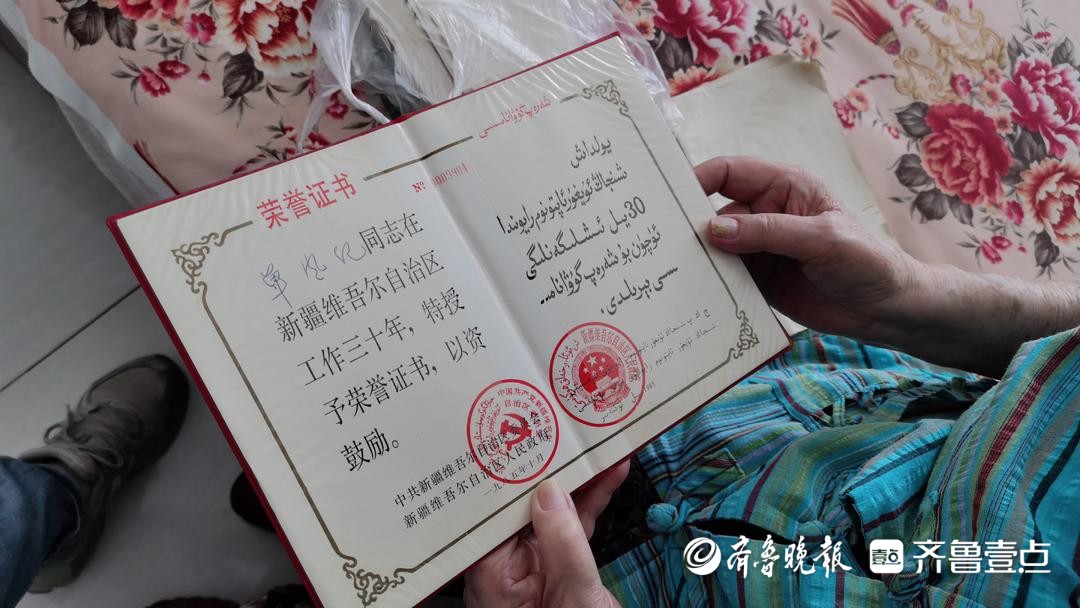 荣誉证书
№ 0009904
单凤仪同志在
新疆维吾尔自治区
工作三十年，特授
予荣誉证书，以资
鼓励。
中共新疆维吾尔自治区委员会
新疆维吾尔自治区人民政府
一九八五年十月
شەرەپ گۇۋانامىسى
يولداش
شىنجاڭ ئۇيغۇر ئاپتونوم رايونىدا
30 يىل ئىشلىگەنلىگى
ئۈچۈن بۇ شەرەپ گۇۋانامـ
سى بېرىلدى.
齐鲁晚报
壹点
齐鲁壹点